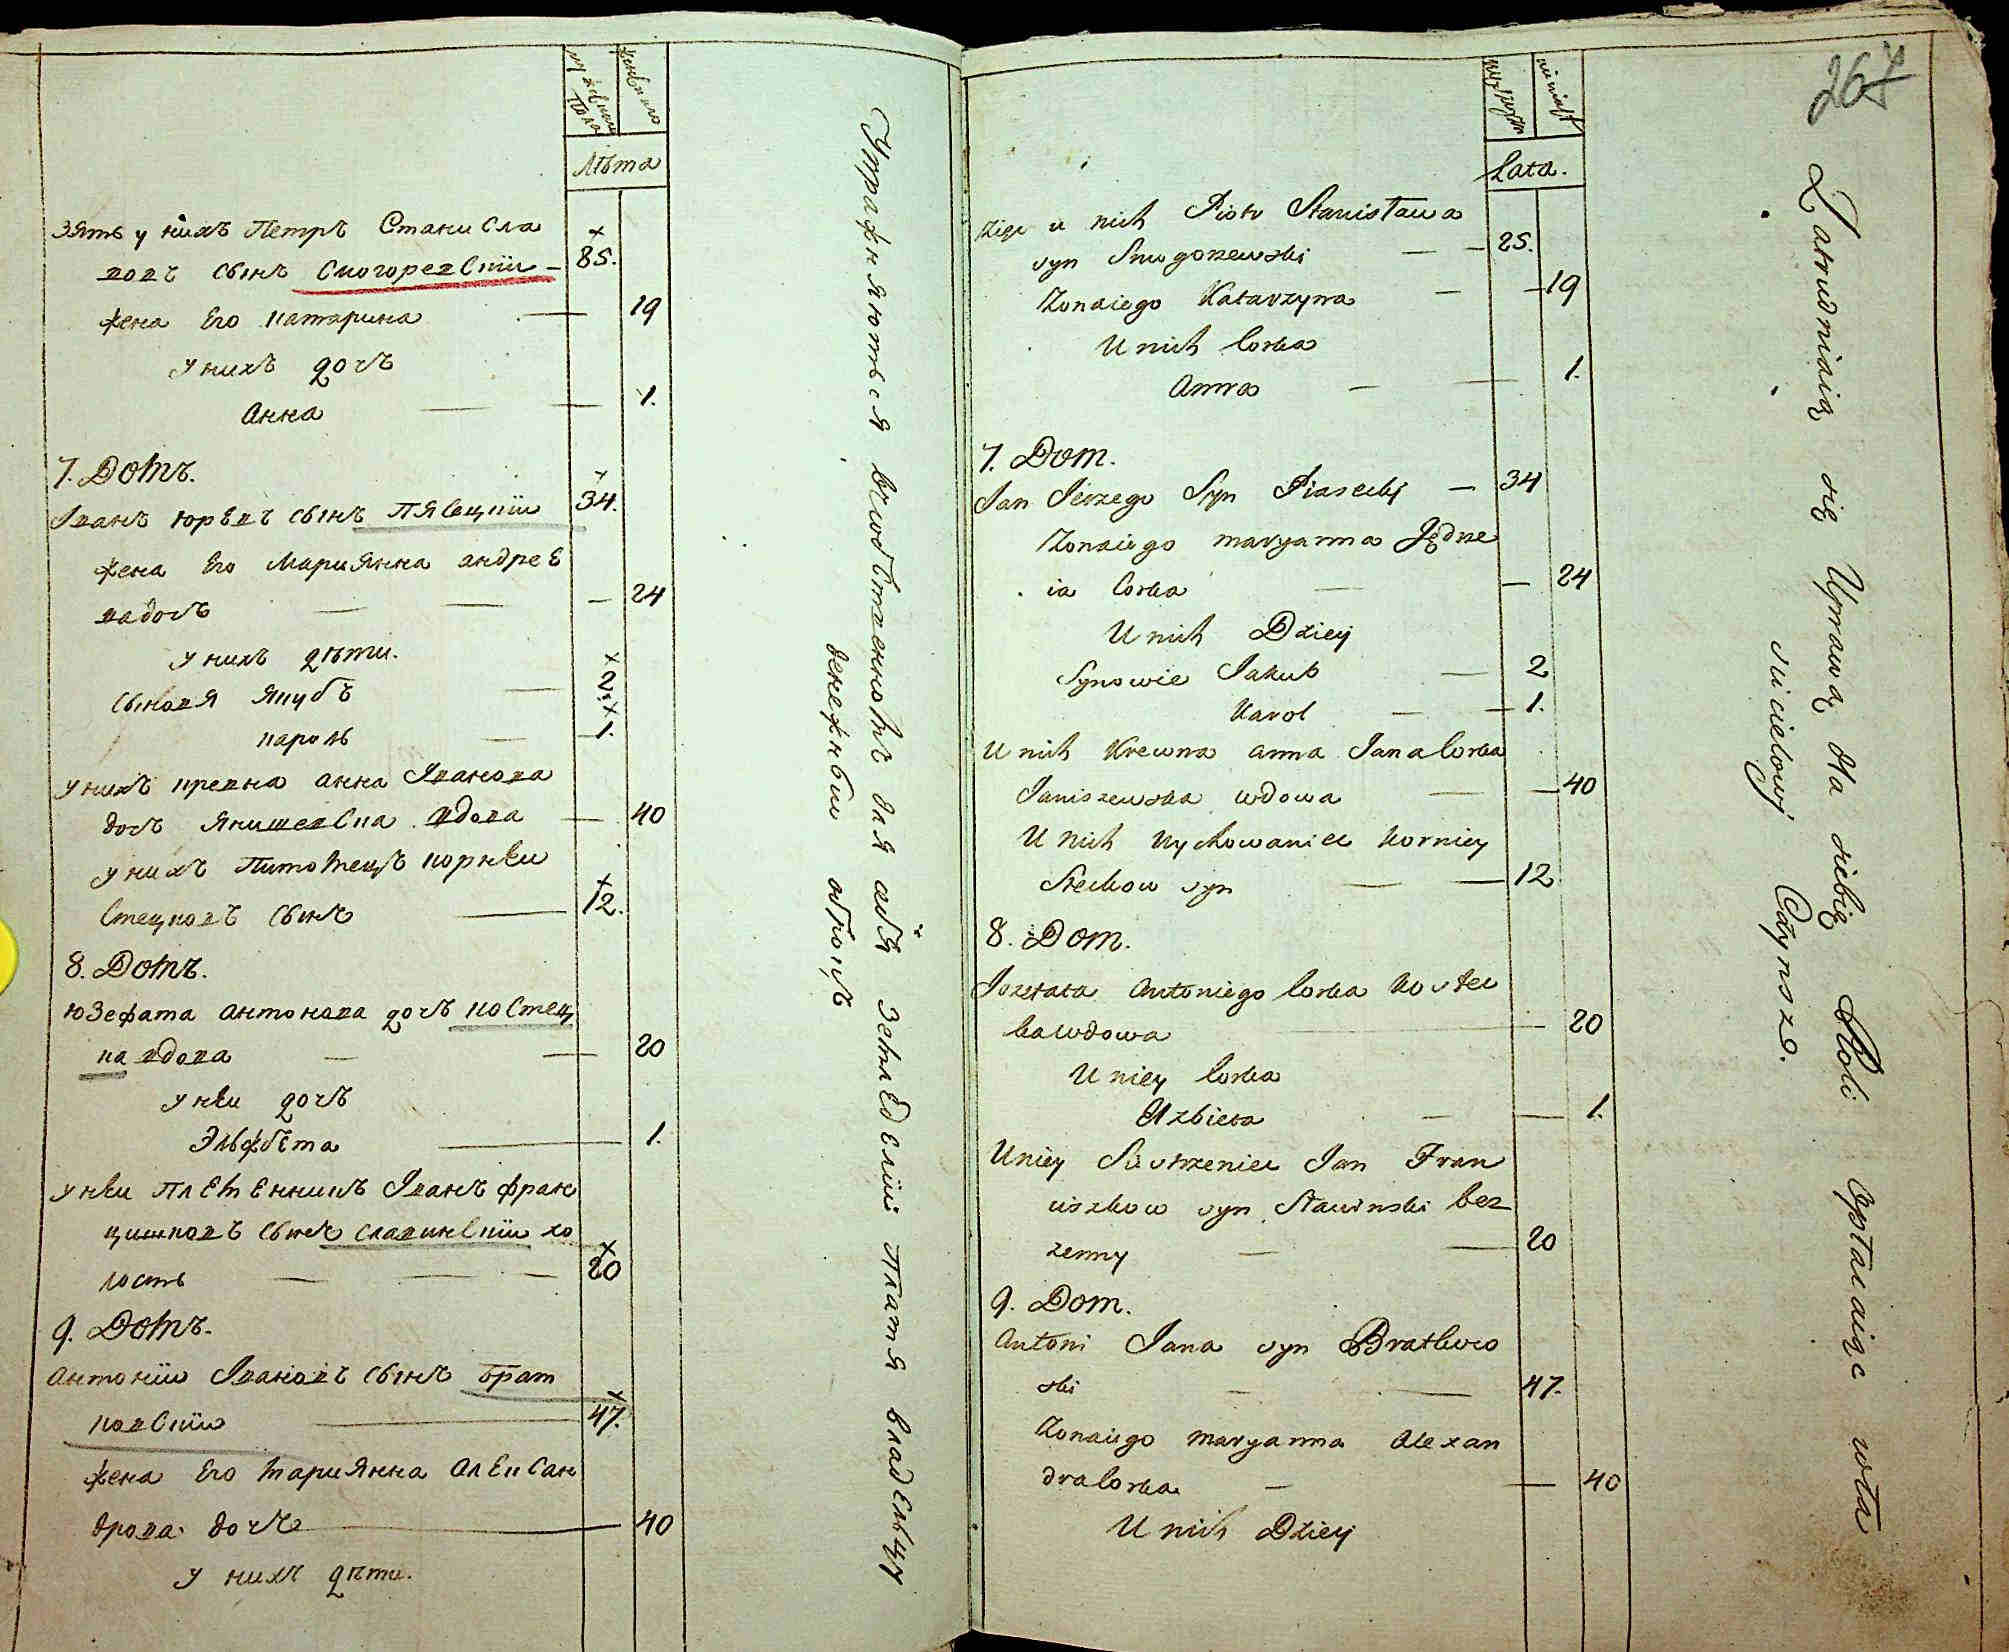 мужескаго пола
женскаго
Лѣта
Зять у нихъ Петръ Станисла
вовъ сынъ Смогоревскій — 85.
жена Его Катарина — 19
у нихъ дочь
Анна — 1.
7. Домъ.
Іванъ Юрьевъ сынъ Пясецкій 34.
жена Его Маріянна Андрее
ва дочь — 24
у нихъ дѣти.
сыновя Якубъ — 2.
Кароль — 1.
у нихъ кревна Анна Іванова
дочь Янишевска вдова — 40
у нихъ питомецъ Корнѣи
Стецковъ сынъ — 12.
8. Домъ.
Юзефата Антонова дочь Костец
ка вдова — 20
у нѣи дочь
Эльжбѣта — 1.
у нѣи племенникъ Іванъ Фран
цишковъ сынъ Славинскій хо
лость — 20
9. Домъ.
Антоній Івановъ сынъ Брат
ковскій — 47.
жена Его Маріянна Алексан
дрова дочь — 40
у нихъ дѣти.
Упражняються воздѣланіемъ для себя земледелія платя владельцу
денежный оброкъ
267
Lata.
Zięć u nich Piotr Stanisława
syn Smogorzewski — 25.
Żona iego Katarzyna — 19
U nich Corka
Anna — 1.
7. Dom.
Jan Jerzego Syn Piasecki — 34
Żona iego Maryanna Jędrze
ia Corka — 24
U nich Dzieci
Synowie Jakub — 2
Karol — 1.
U nich Krewna Anna Jana Corka
Janiszewska wdowa — 40
U nich Wychowaniec Korniey
Steckow syn — 12
8. Dom.
Jozefata Antoniego Corka Kostec
ka wdowa — 20
U niey Corka
Elzbieta — 1.
U niey Siostrzeniec Jan Fran
ciszkow syn Sławinski bez
zenny — 20
9. Dom.
Antoni Jana syn Bratkow
ski — 47.
Żona iego Maryanna Alexan
dra Corka — 40
U nich Dzieci
Zatrudniaią się Uprawą dla siebie Roli opłacaiąc wła
scicielowi Czynsz.